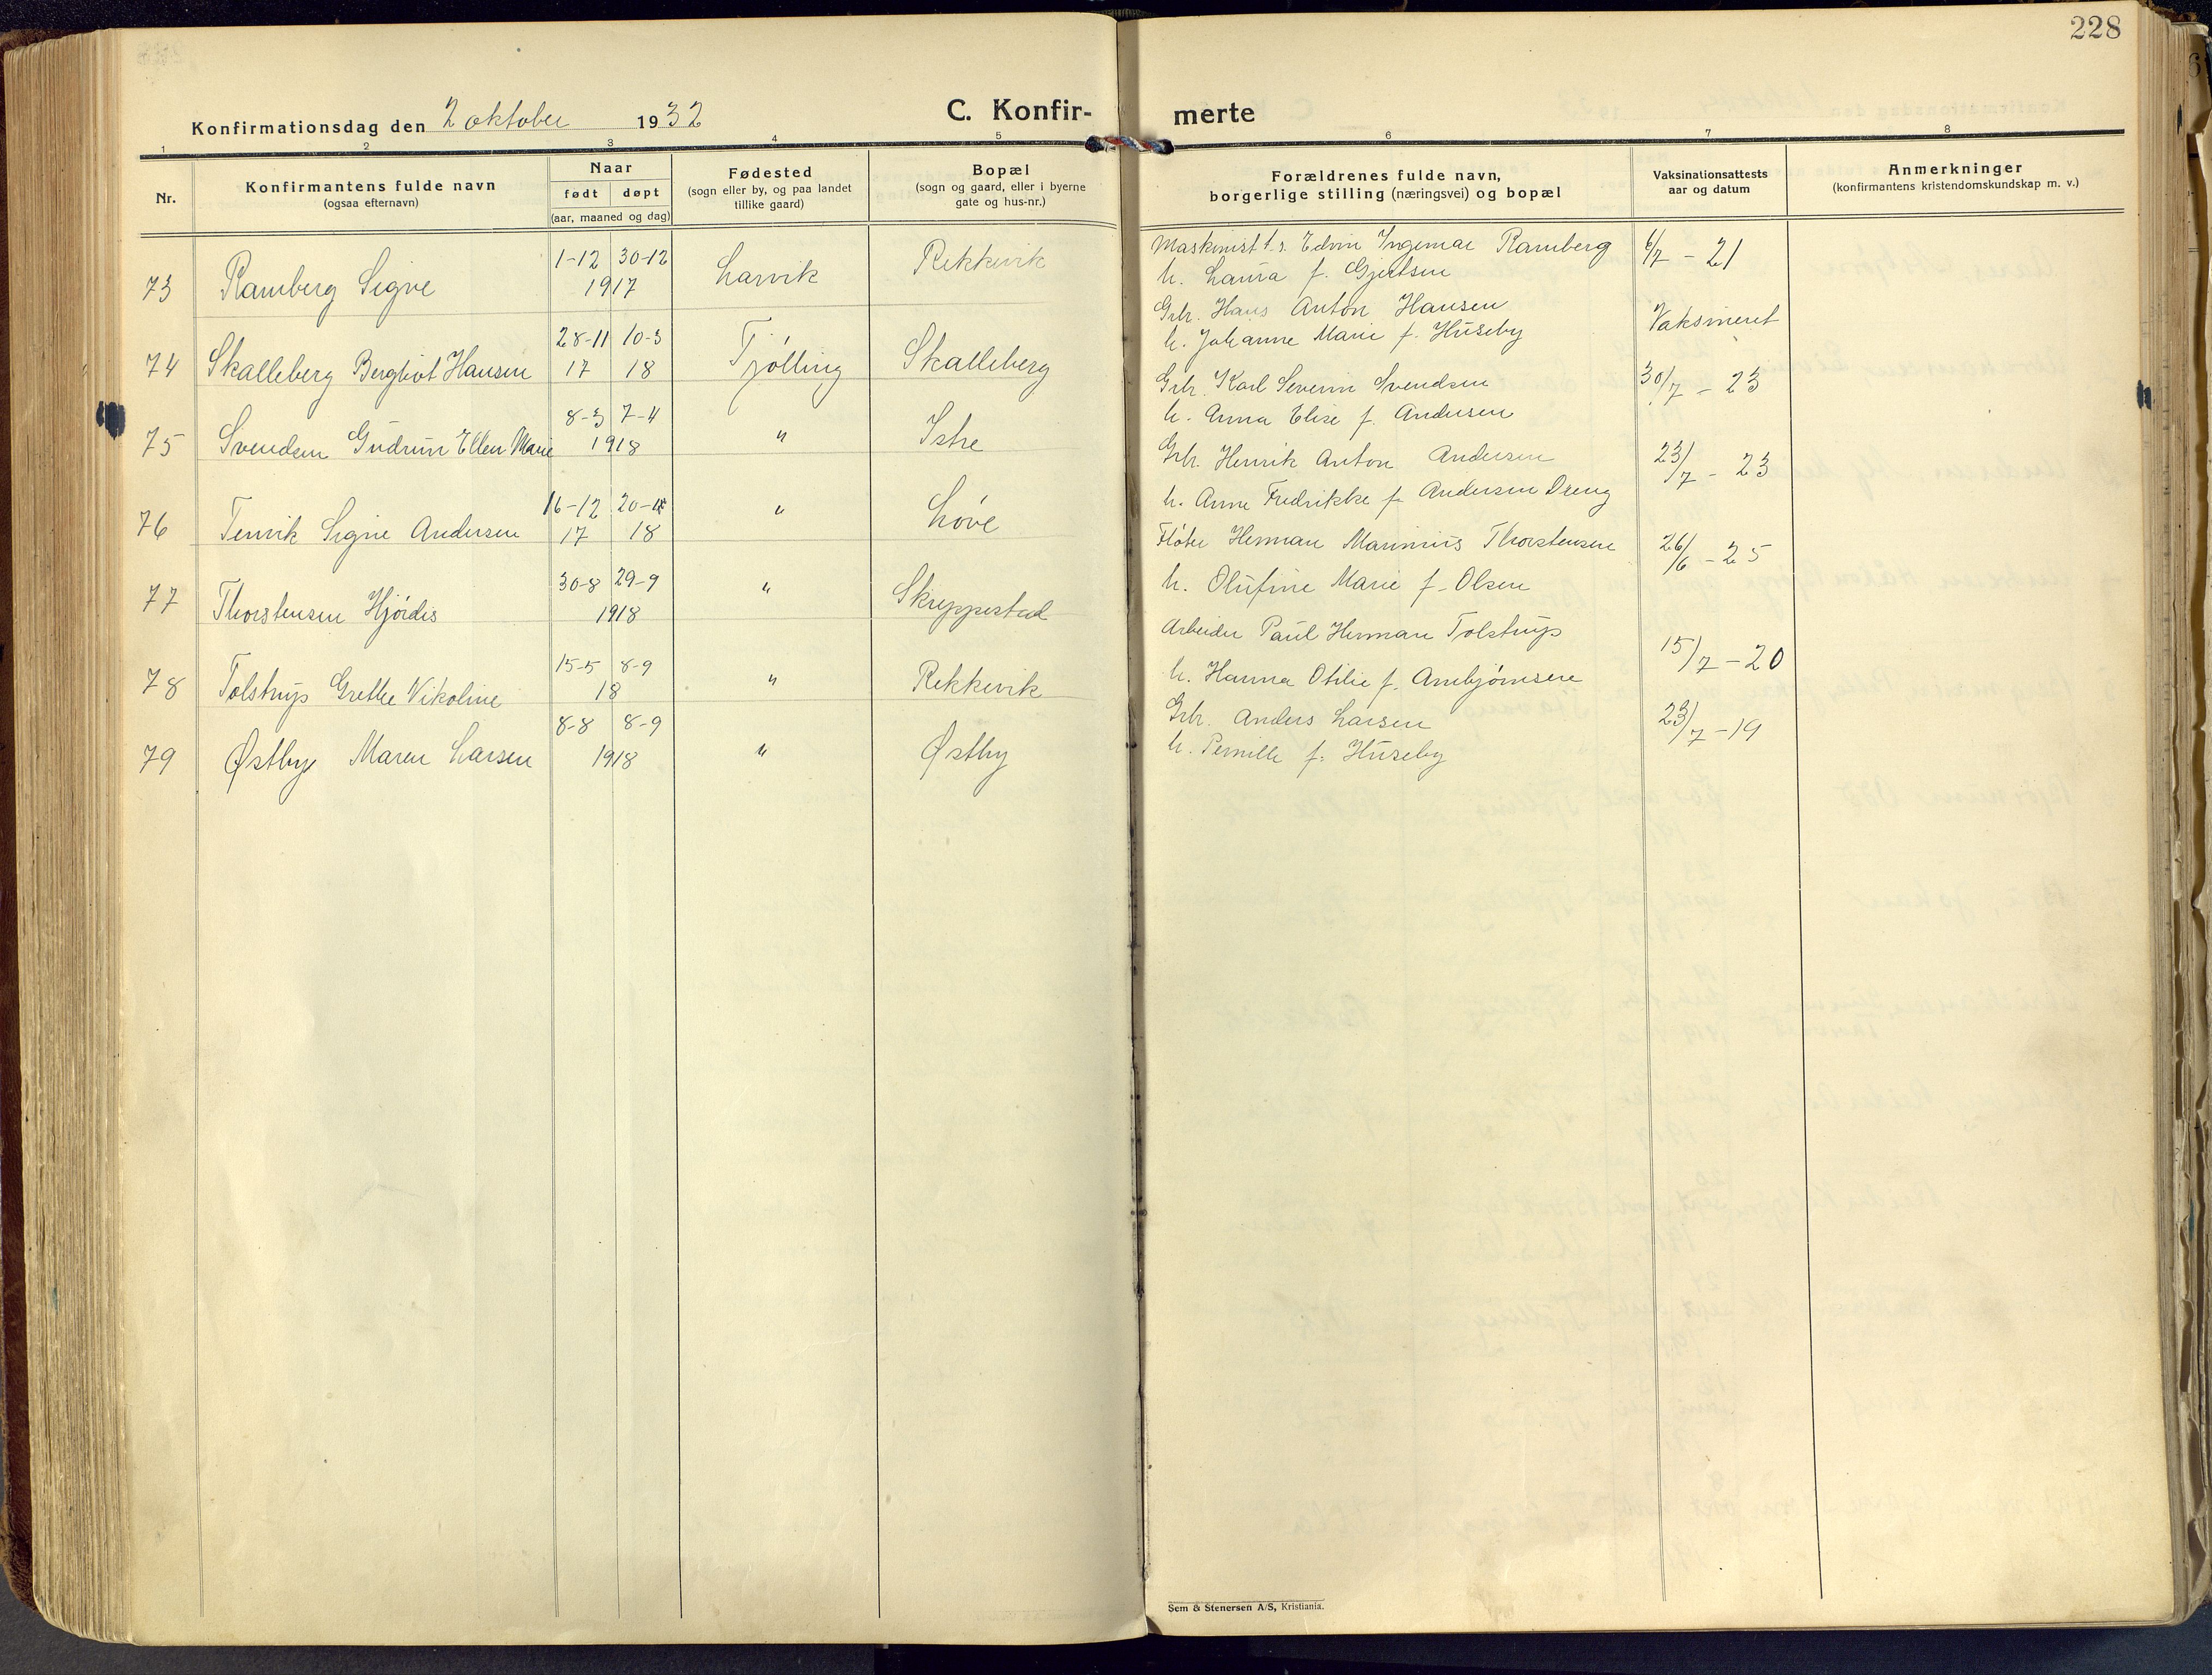 228
Konfirmationsdag den 2 oktober 1932
C. Konfir-
merte
1 2 3 4 5 6 7 8
Nr.
Konfirmantens fulde navn
(ogsaa efternavn)
Naar
født døpt
(aar, maaned og dag)
Fødested
(sogn eller by, og paa landet
tillike gaard)
Bopæl
(sogn og gaard, eller i byerne
gate og hus-nr.)
Forældrenes fulde navn,
borgerlige stilling (næringsvei) og bopæl
Vaksinationsattests
aar og datum
Anmerkninger
(konfirmantens kristendomskundskap m. v.)
1-12 30-12
73 Ramberg Signe 1917 Larvik Rekkevik
Maskinist t.s. Edvin Ingemar Ramberg 6/7 - 21
h. Laura f. Gjertsen
28-11 10-3
74 Skalleberg Bergliot Hansen 17 18 Tjølling Skalleberg
Grbr. Hans Anton Hansen Vaksineret
h. Johanne Marie f. Huseby
8-3 7-4
75 Svendsen Gudrun Ellen Marie 1918 " Istre
Grbr. Karl Severin Svendsen 30/7 - 23
h. Anna Elise f. Andersen
16-12 20-4
76 Tenvik Signe Andersen 17 18 " Løve
Grbr. Henrik Anton Andersen 23/7 - 23
h. Anne Fredrikke f. Andersen Dreng
30-8 29-9
77 Thorstensen Hjørdis 1918 " Skreppestad
Fløter Herman Marinius Thorstensen 26/6 - 25
h. Olufine Marie f. Olsen
15-5 8-9
78 Tolstrup Grethe Nikoline 18 " Rekkevik
Arbeider Paul Herman Tolstrup 15/7 - 20
h. Hanna Otilie f. Arnebjørnsen
8-8 8-9
79 Østbye Maren Larsen 1918 " Østby
Grbr. Anders Larsen 23/7 - 19
h. Pernille f. Huseby
Sem & Stenersen A/S, Kristiania.